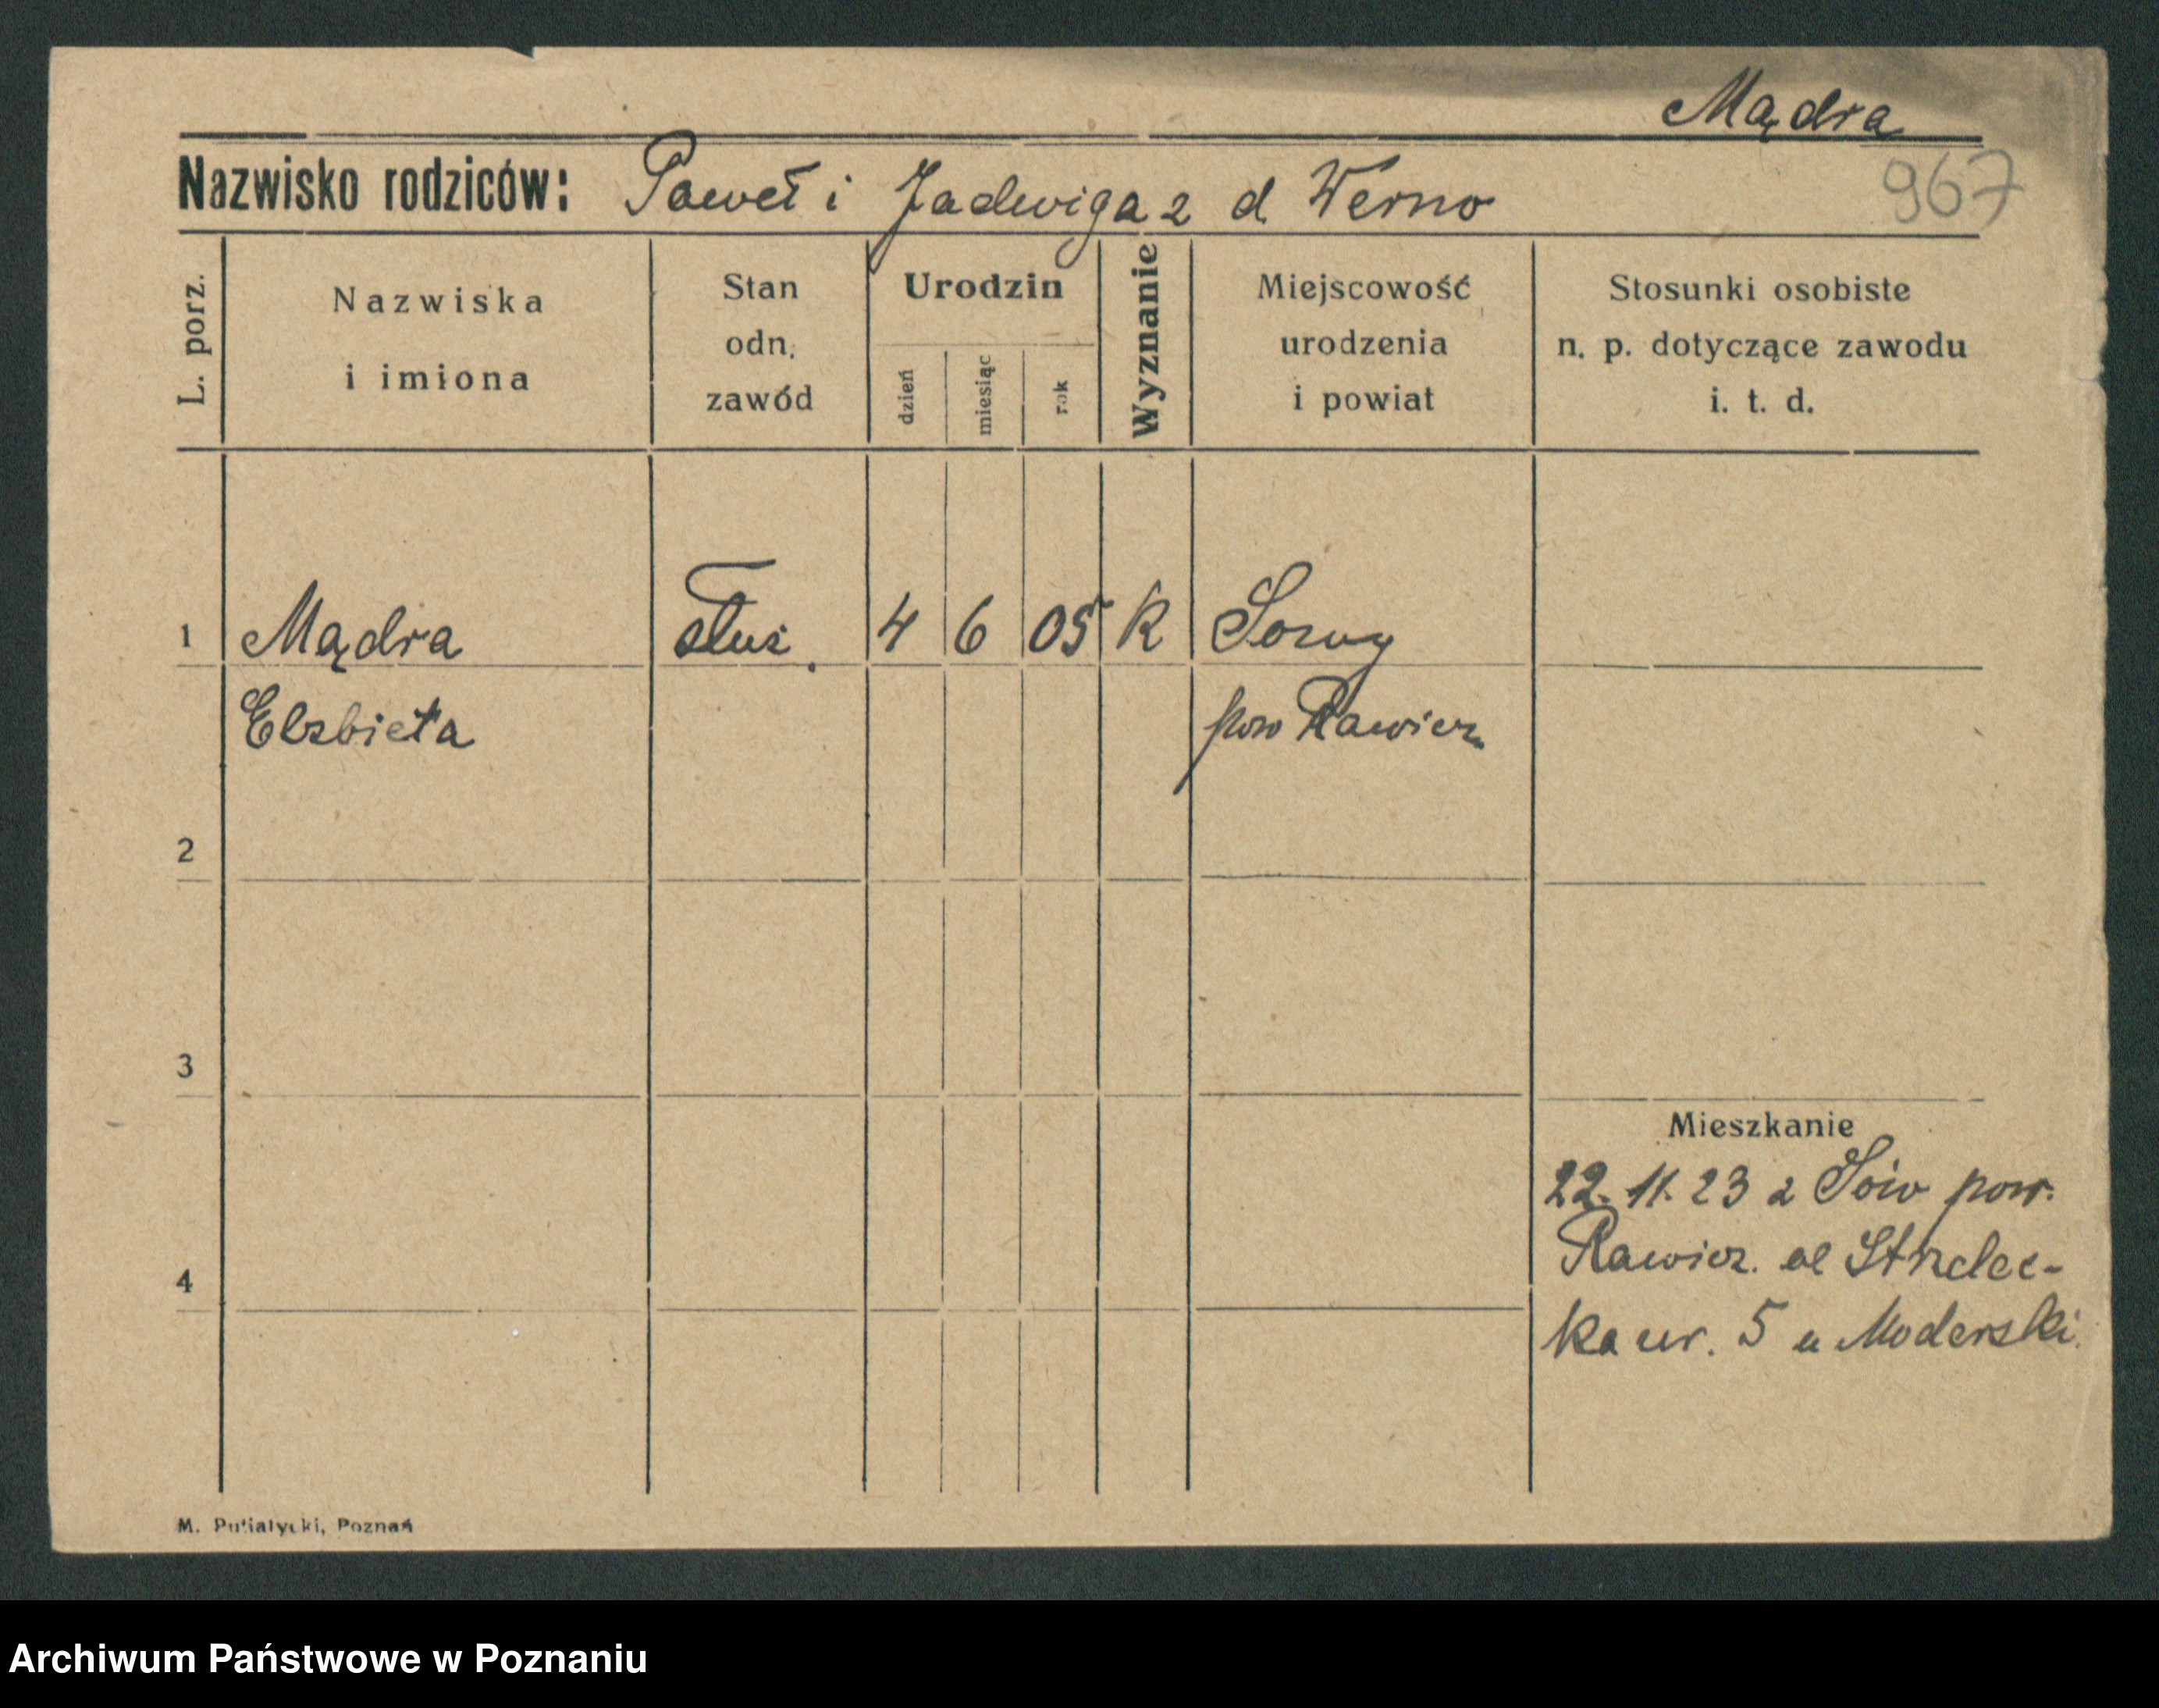 Mądra
967
Nazwisko rodziców: Paweł i Jadwiga z d Werno
L. porz.
Nazwiska
i imiona
Stan
odn.
zawód
Urodzin
dzień
miesiąc
rok
Wyznanie
Miejscowość
urodzenia
i powiat
Stosunki osobiste
n. p. dotyczące zawodu
i. t. d.
1 Mądra służ. 4 6 05 K
Elzbieta pow Rawicz
2
3
Mieszkanie
22. 11. 23 z pow.
Rawicz. ul Strzelec-
4
ka nr. 5 u Moderski.
M. Putiatycki, Poznań
Archiwum Państwowe w Poznaniu